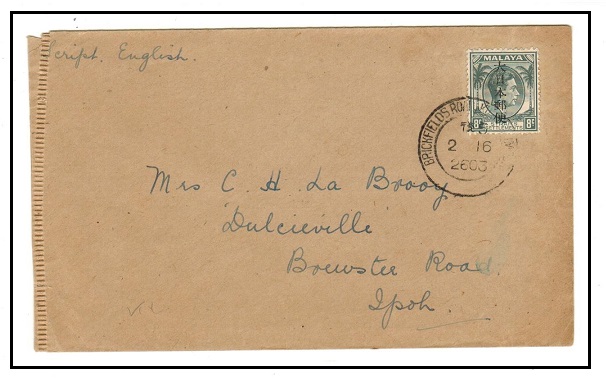 Script. English.
MALAYA
大日本郵便
8c
8c
BRICKFIELDS ROAD
2 16
2603
Mrs C. H. La Brooy
Dulcieville
Brewster Road
Ipoh.